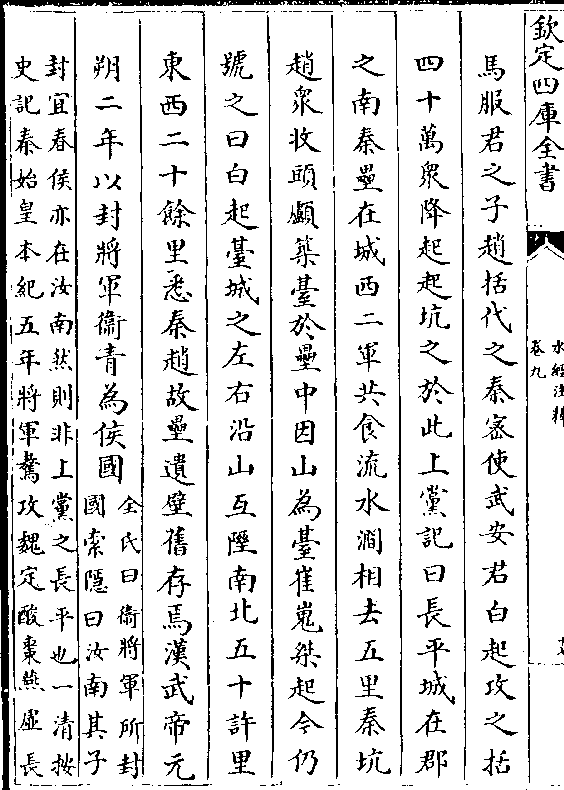 欽定四庫全書
水經注釋
卷九
馬服君之子趙括代之秦宻使武安君白起攻之括
四十萬衆降起起坑之於此上黨記曰長平城在郡
之南秦壘在城西二軍共食流水澗相去五里秦坑
趙衆收頭顱築臺於壘中因山為臺崔嵬桀起今仍
號之曰白起臺城之左右沿山亙隰南北五十許里
東西二十餘里悉秦趙故壘遺壁舊存焉漢武帝元
朔二年以封將軍衞青為侯國
全氏曰衞將軍所封
國索隱曰汝南其子
封宜春侯亦在汝南然則非上黨之長平也一清按
史記秦始皇本紀五年將軍驁攻魏定酸棗燕虛長